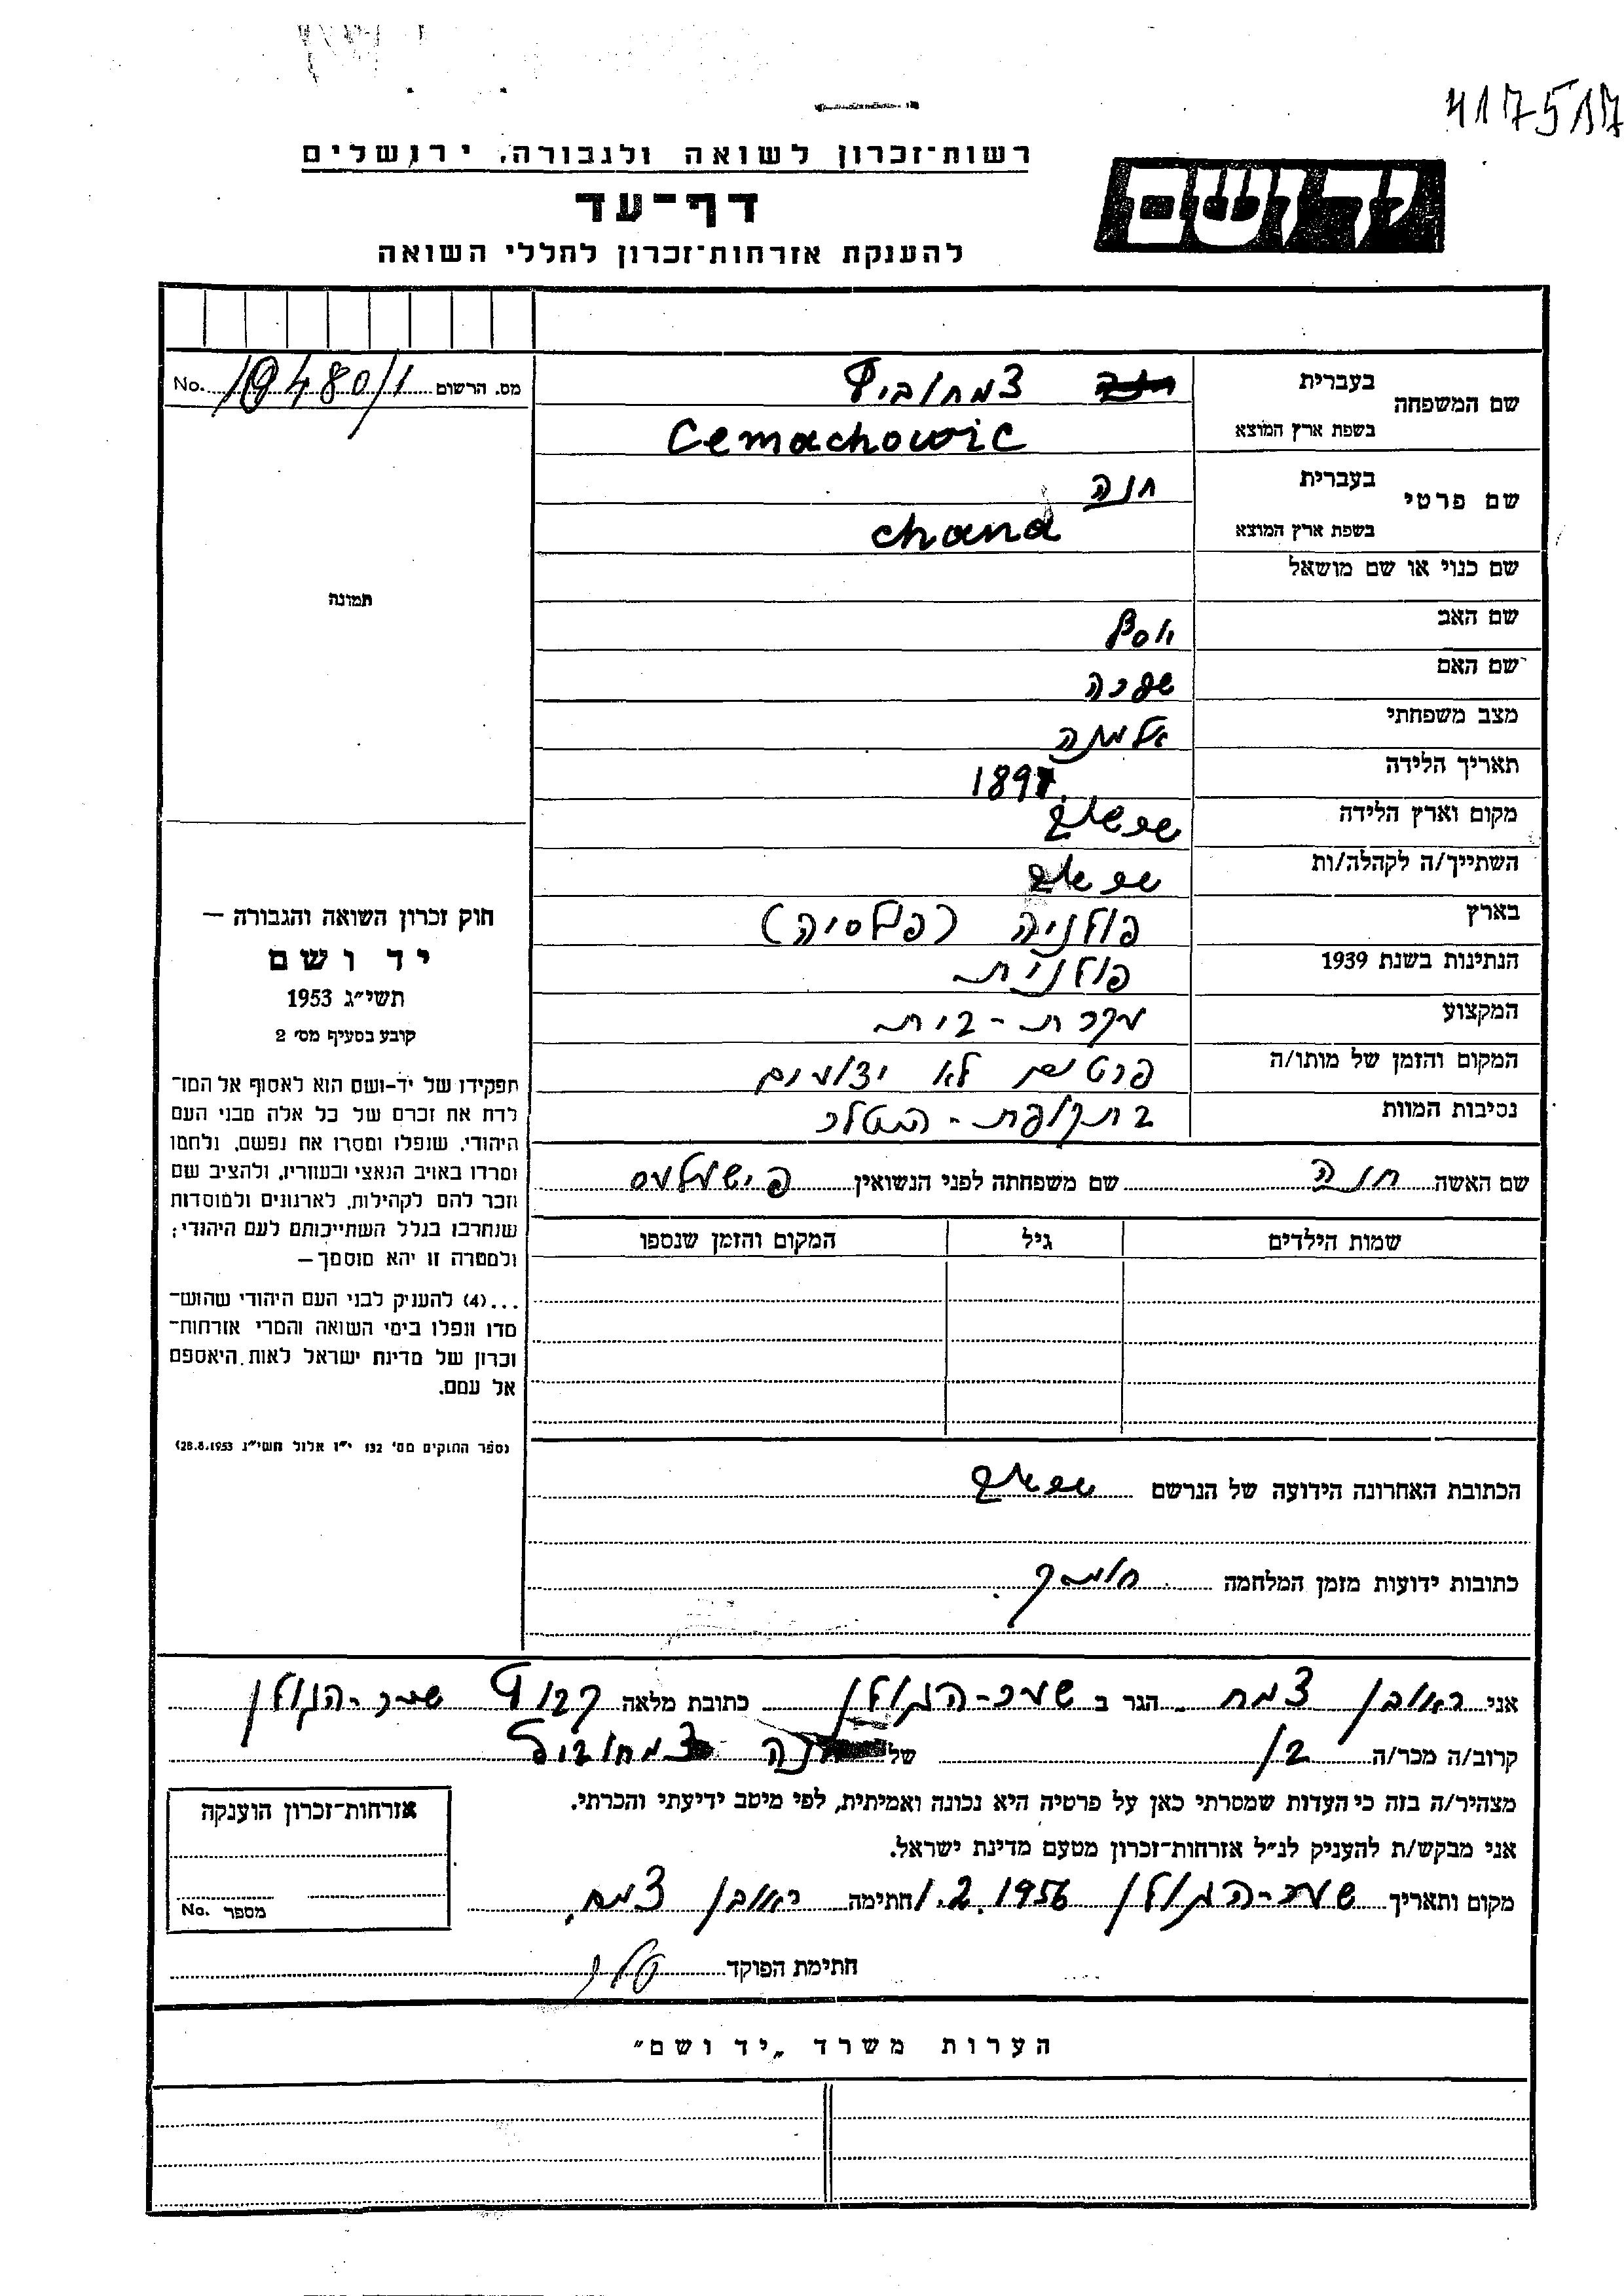 417517
רשות־זכרון לשואה ולגבורה, ירושלים
דף־עד
להענקת אזרחות־זכרון לחללי השואה
יד ושם
מס. הרשום 19480/1 No.
שם המשפחה
בעברית צמחוביץ
בשפת ארץ המוצא Cemachowic
שם פרטי
בעברית חנה
בשפת ארץ המוצא chana
שם כנוי או שם מושאל
שם האב יוסף
שם האם שפרה
מצב משפחתי אלמנה
תאריך הלידה 1897
מקום וארץ הלידה
השתייך/ה לקהלה/ות
בארץ פולניה (פולסיה)
הנתינות בשנת 1939 פולנית
המקצוע עקרת-בית
המקום והזמן של מותו/ה פרטים לא ידועים
נסיבות המוות בתקופת-היטלר
שם האשה חנה שם משפחתה לפני הנשואין
שמות הילדים גיל המקום והזמן שנספו
הכתובת האחרונה הידועה של הנרשם
כתובות ידועות מזמן המלחמה
תמונה
חוק זכרון השואה והגבורה —
יד ושם
תשי״ג 1953
קובע בסעיף מס׳ 2
תפקידו של יד-ושם הוא לאסוף אל המו־
לדת את זכרם של כל אלה מבני העם
היהודי, שנפלו ומסרו את נפשם, נלחמו
ומרדו באויב הנאצי ובעוזריו, ולהציב שם
וזכר להם לקהילות, לארגונים ולמוסדות
שנחרבו בגלל השתייכותם לעם היהודי;
ולמטרה זו יהא מוסמך —
...(4) להעניק לבני העם היהודי שהוש־
מדו ונפלו בימי השואה והמרי אזרחות־
זכרון של מדינת ישראל לאות היאספם
אל עמם.
(ספר החוקים מס׳ 132 י״ז אלול תשי״ג 28.8.1953)
אני ראובן צמח הגר ב שער-הגולן כתובת מלאה קבוץ שער-הגולן
קרוב/ה מכר/ה בן של חנה צמחוביץ
מצהיר/ה בזה כי העדות שמסרתי כאן על פרטיה היא נכונה ואמיתית, לפי מיטב ידיעתי והכרתי.
אני מבקש/ת להעניק לנ״ל אזרחות־זכרון מטעם מדינת ישראל.
מקום ותאריך שער-הגולן 1.2.1956 חתימה ראובן צמח
אזרחות־זכרון הוענקה
מספר No.
חתימת הפוקד
הערות משרד „יד ושם״